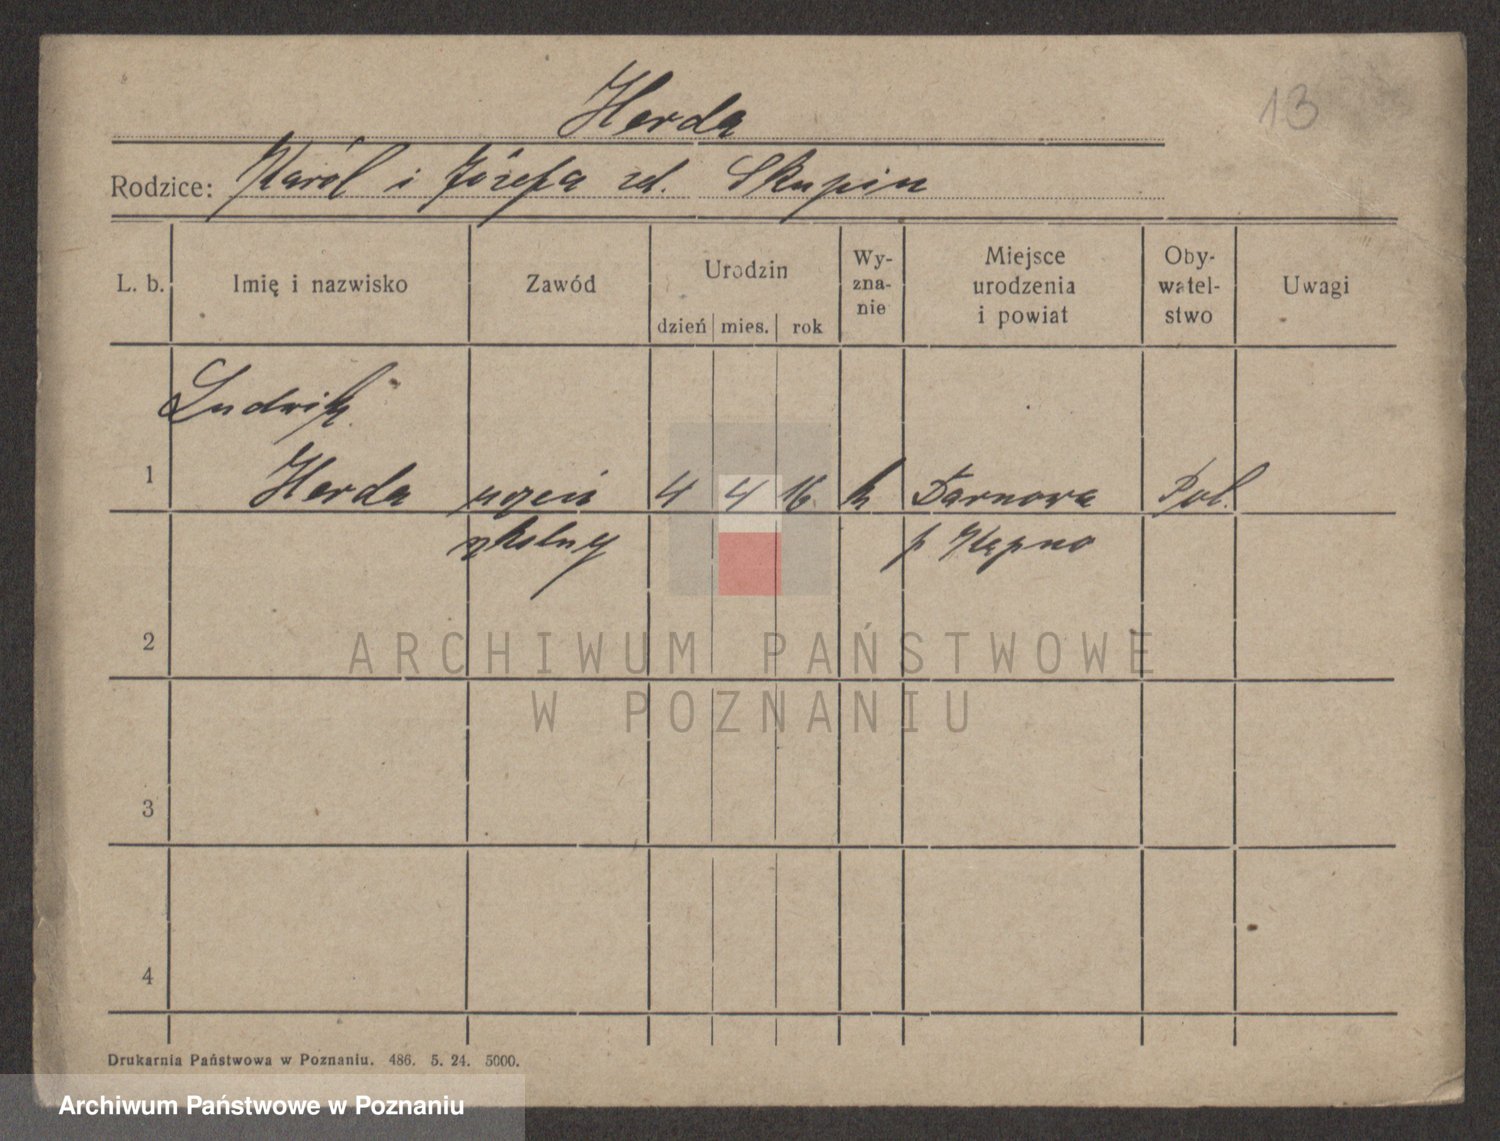 13
Herda
Rodzice: Karól i Józefa zd. Skupin
L. b. Imię i nazwisko Zawód Urodzin dzień mies. rok Wy-zna-nie Miejsce urodzenia i powiat Oby-watel-stwo Uwagi
Ludwik
1 Herda uczeń 4 4 16 k Tarnowa Pol.
szkolny p Kępno
2
ARCHIWUM PAŃSTWOWE
W POZNANIU
3
4
Drukarnia Państwowa w Poznaniu. 486. 5. 24. 5000.
Archiwum Państwowe w Poznaniu